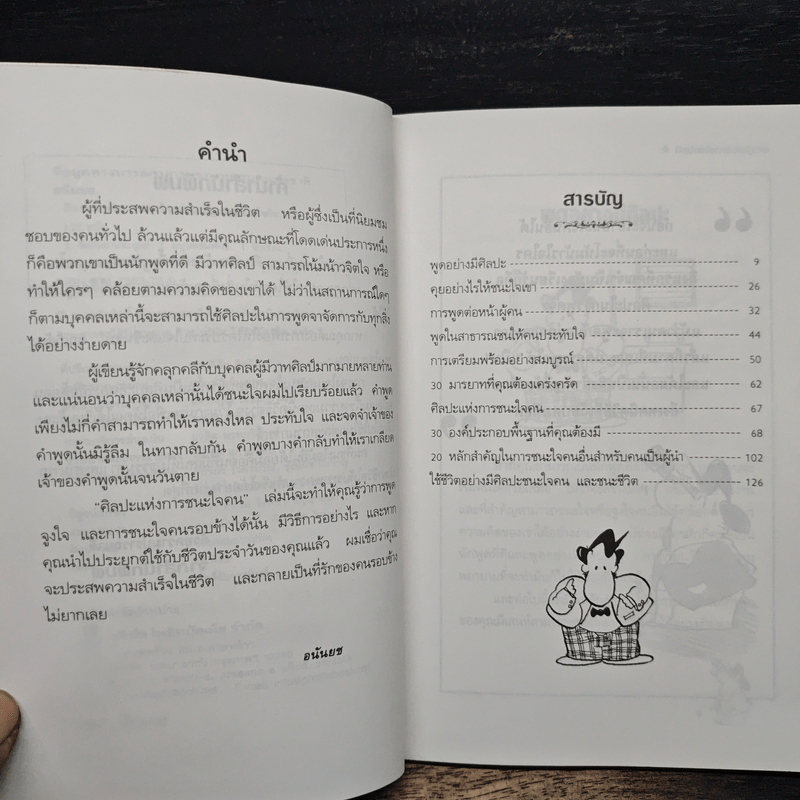 คำนำ
ผู้ที่ประสพความสำเร็จในชีวิต หรือผู้ซึ่งเป็นที่นิยมชม
ชอบของคนทั่วไป ล้วนแล้วแต่มีคุณลักษณะที่โดดเด่นประการหนึ่ง
ก็คือพวกเขาเป็นนักพูดที่ดี มีวาทศิลป์ สามารถโน้มน้าวจิตใจ หรือ
ทำให้ใครๆ คล้อยตามความคิดของเขาได้ ไม่ว่าในสถานการณ์ใดๆ
ก็ตามบุคคลเหล่านี้จะสามารถใช้ศิลปะในการพูดจาจัดการกับทุกสิ่ง
ได้อย่างง่ายดาย
ผู้เขียนรู้จักคลุกคลีกับบุคคลผู้มีวาทศิลป์มากมายหลายท่าน
และแน่นอนว่าบุคคลเหล่านั้นได้ชนะใจผมไปเรียบร้อยแล้ว คำพูด
เพียงไม่กี่คำสามารถทำให้เราหลงใหล ประทับใจ และจดจำเจ้าของ
คำพูดนั้นมิรู้ลืม ในทางกลับกัน คำพูดบางคำกลับทำให้เราเกลียด
เจ้าของคำพูดนั้นจนวันตาย
"ศิลปะแห่งการชนะใจคน" เล่มนี้จะทำให้คุณรู้ว่าการพูด
จูงใจ และการชนะใจคนรอบข้างได้นั้น มีวิธีการอย่างไร และหาก
คุณนำไปประยุกต์ใช้กับชีวิตประจำวันของคุณแล้ว ผมเชื่อว่าคุณ
จะประสพความสำเร็จในชีวิต และกลายเป็นที่รักของคนรอบข้าง
ไม่ยากเลย
อนันยช
สารบัญ
พูดอย่างมีศิลปะ 9
คุยอย่างไรให้ชนะใจเขา 26
การพูดต่อหน้าผู้คน 32
พูดในสาธารณชนให้คนประทับใจ 44
การเตรียมพร้อมอย่างสมบูรณ์ 50
30 มารยาทที่คุณต้องเคร่งครัด 62
ศิลปะแห่งการชนะใจคน 67
30 องค์ประกอบพื้นฐานที่คุณต้องมี 68
20 หลักสำคัญในการชนะใจคนอื่นสำหรับคนเป็นผู้นำ 102
ใช้ชีวิตอย่างมีศิลปะชนะใจคน และชนะชีวิต 126